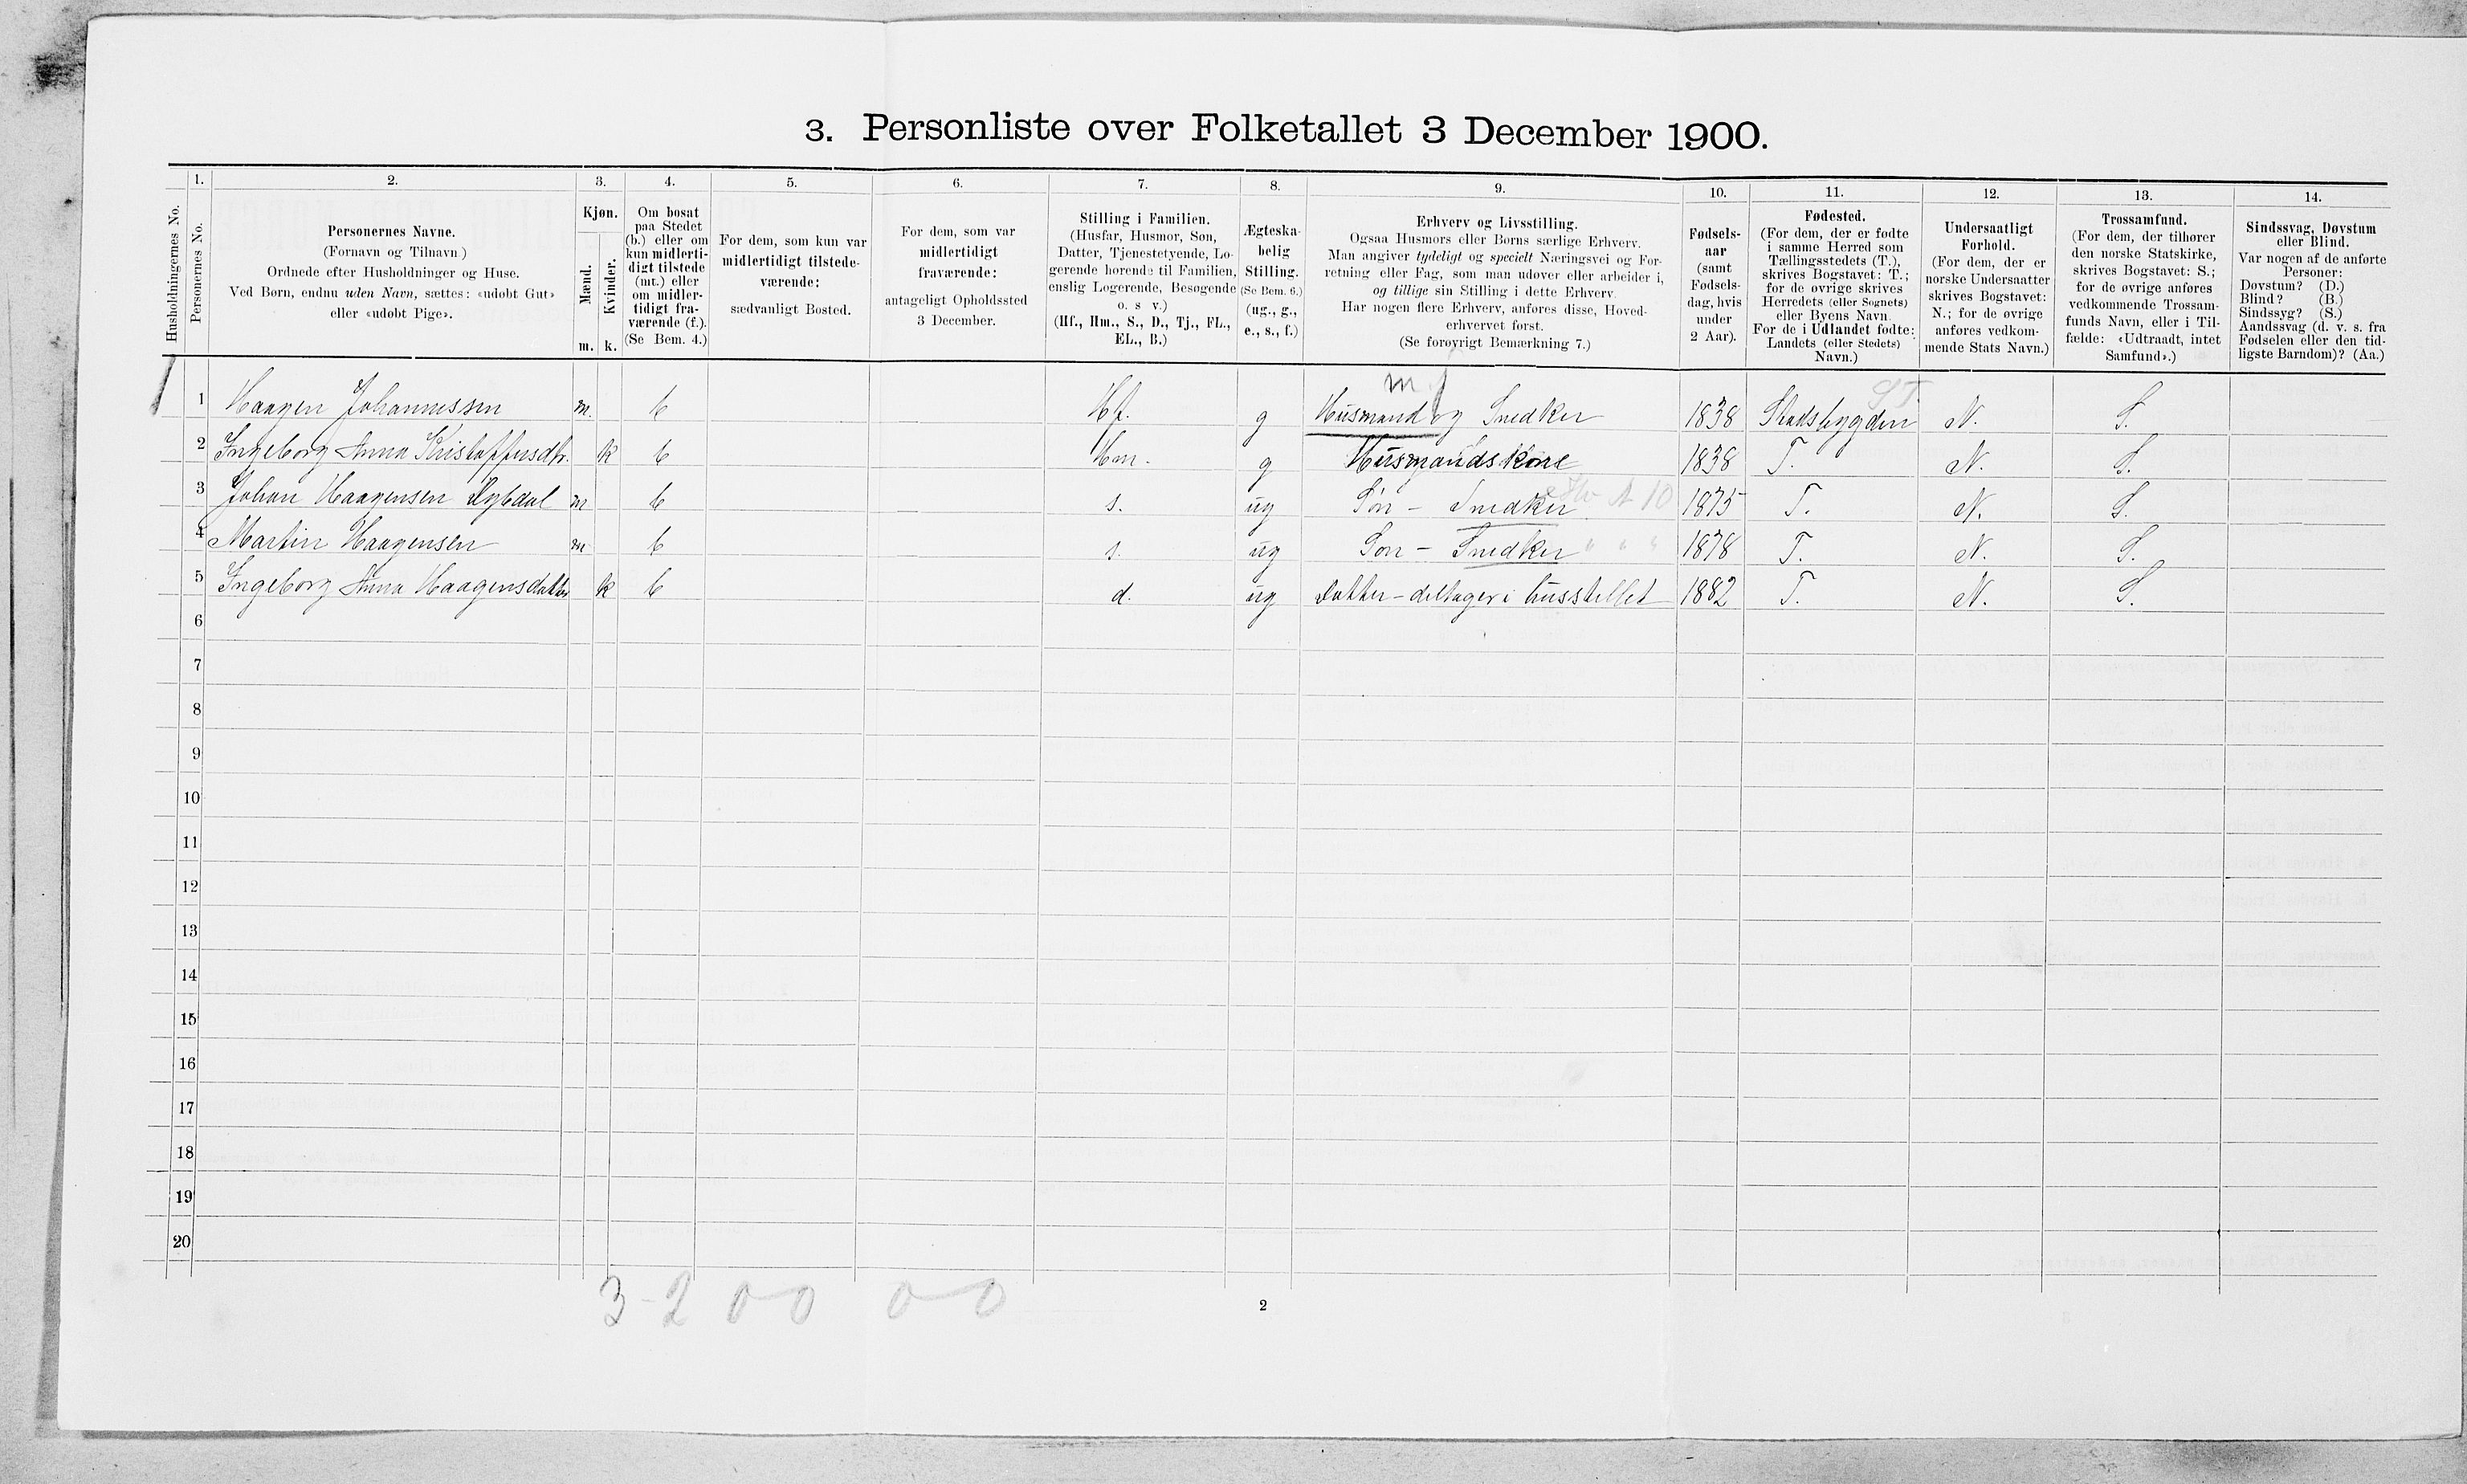 3. Personliste over Folketallet 3 December 1900.
1. 2. 3. 4. 5. 6. 7. 8. 9. 10. 11. 12. 13. 14.
Husholdningernes No.
Personernes No.
Personernes Navne.
(Fornavn og Tilnavn.)
Ordnede efter Husholdninger og Huse.
Ved Børn, endnu uden Navn, sættes: «udøbt Gut»
eller «udøbt Pige».
Kjøn.
Mænd.
Kvinder.
m. k.
Om bosat
paa Stedet
(b.) eller om
kun midlerti-
digt tilstede
(mt.) eller
om midler-
tidigt fra-
værende (f.).
(Se Bem. 4.)
For dem, som kun var
midlertidigt tilstede-
værende:
sædvanligt Bosted.
For dem, som var
midlertidigt
fraværende:
antageligt Opholdssted
3 December.
Stilling i Familien.
(Husfar, Husmor, Søn,
Datter, Tjenestetyende, Lo-
gerende hørende til Familien,
enslig Logerende, Besøgende
o. s v.)
(Hf., Hm., S., D., Tj., FL.,
EL., B.)
Ægteska-
belig
Stilling.
(Se Bem. 6.)
(ug., g.,
e., s., f.)
Erhverv og Livsstilling.
Ogsaa Husmors eller Børns særlige Erhverv.
Man angiver tydeligt og specielt Næringsvei og For-
retning eller Fag, som man udøver eller arbeider i,
og tillige sin Stilling i dette Erhverv.
Har nogen flere Erhverv, anføres disse, Hoved-
erhvervet først.
(Se forøvrigt Bemærkning 7.)
Fødsels-
aar
(samt
Fødsels-
dag, hvis
under
2 Aar).
Fødested.
(For dem, der er fødte
i samme Herred som
Tællingsstedets (T.),
skrives Bogstavet: T.;
for de øvrige skrives
Herredets (eller Sognets)
eller Byens Navn.
For de i Udlandet fødte:
Landets (eller Stedets)
Navn.)
Undersaatligt
Forhold.
(For dem, der er
norske Undersaatter
skrives Bogstavet:
N.; for de øvrige
anføres vedkom-
mende Stats Navn.)
Trossamfund.
(For dem, der tilhører
den norske Statskirke,
skrives Bogstavet: S.;
for de øvrige anføres
vedkommende Trossam-
funds Navn, eller i Til-
fælde: «Udtraadt, intet
Samfund».)
Sindssvag, Døvstum
eller Blind.
Var nogen af de anførte
Personer:
Døvstum? (D.)
Blind? (B.)
Sindssyg? (S.)
Aandssvag (d. v. s. fra
Fødselen eller den tid-
ligste Barndom)? (Aa.)
m j ST
1 Haagen Johannessen m. b Hf. g Husmand og Snedker 1838 Stadsbygden N. S.
2 Ingeborg Anna Kristoffersdtr. k b Hm. g Husmandskone 1838 T. N. S.
3 Johan Haagensen Dybdal m b s. ug Søn - Snedker A 10 1875 T. N. S.
4 Martin Haagensen m b s. ug Søn - Snedker " " " 1878 T. N. S.
5 Ingeborg Anna Haagensdatter k b d. ug Datter - deltager i husstellet 1882 T. N. S.
6
7
8
9
10
11
12
13
14
15
16
17
18
19
20
3 - 2 0 - 0 0 - 0
2